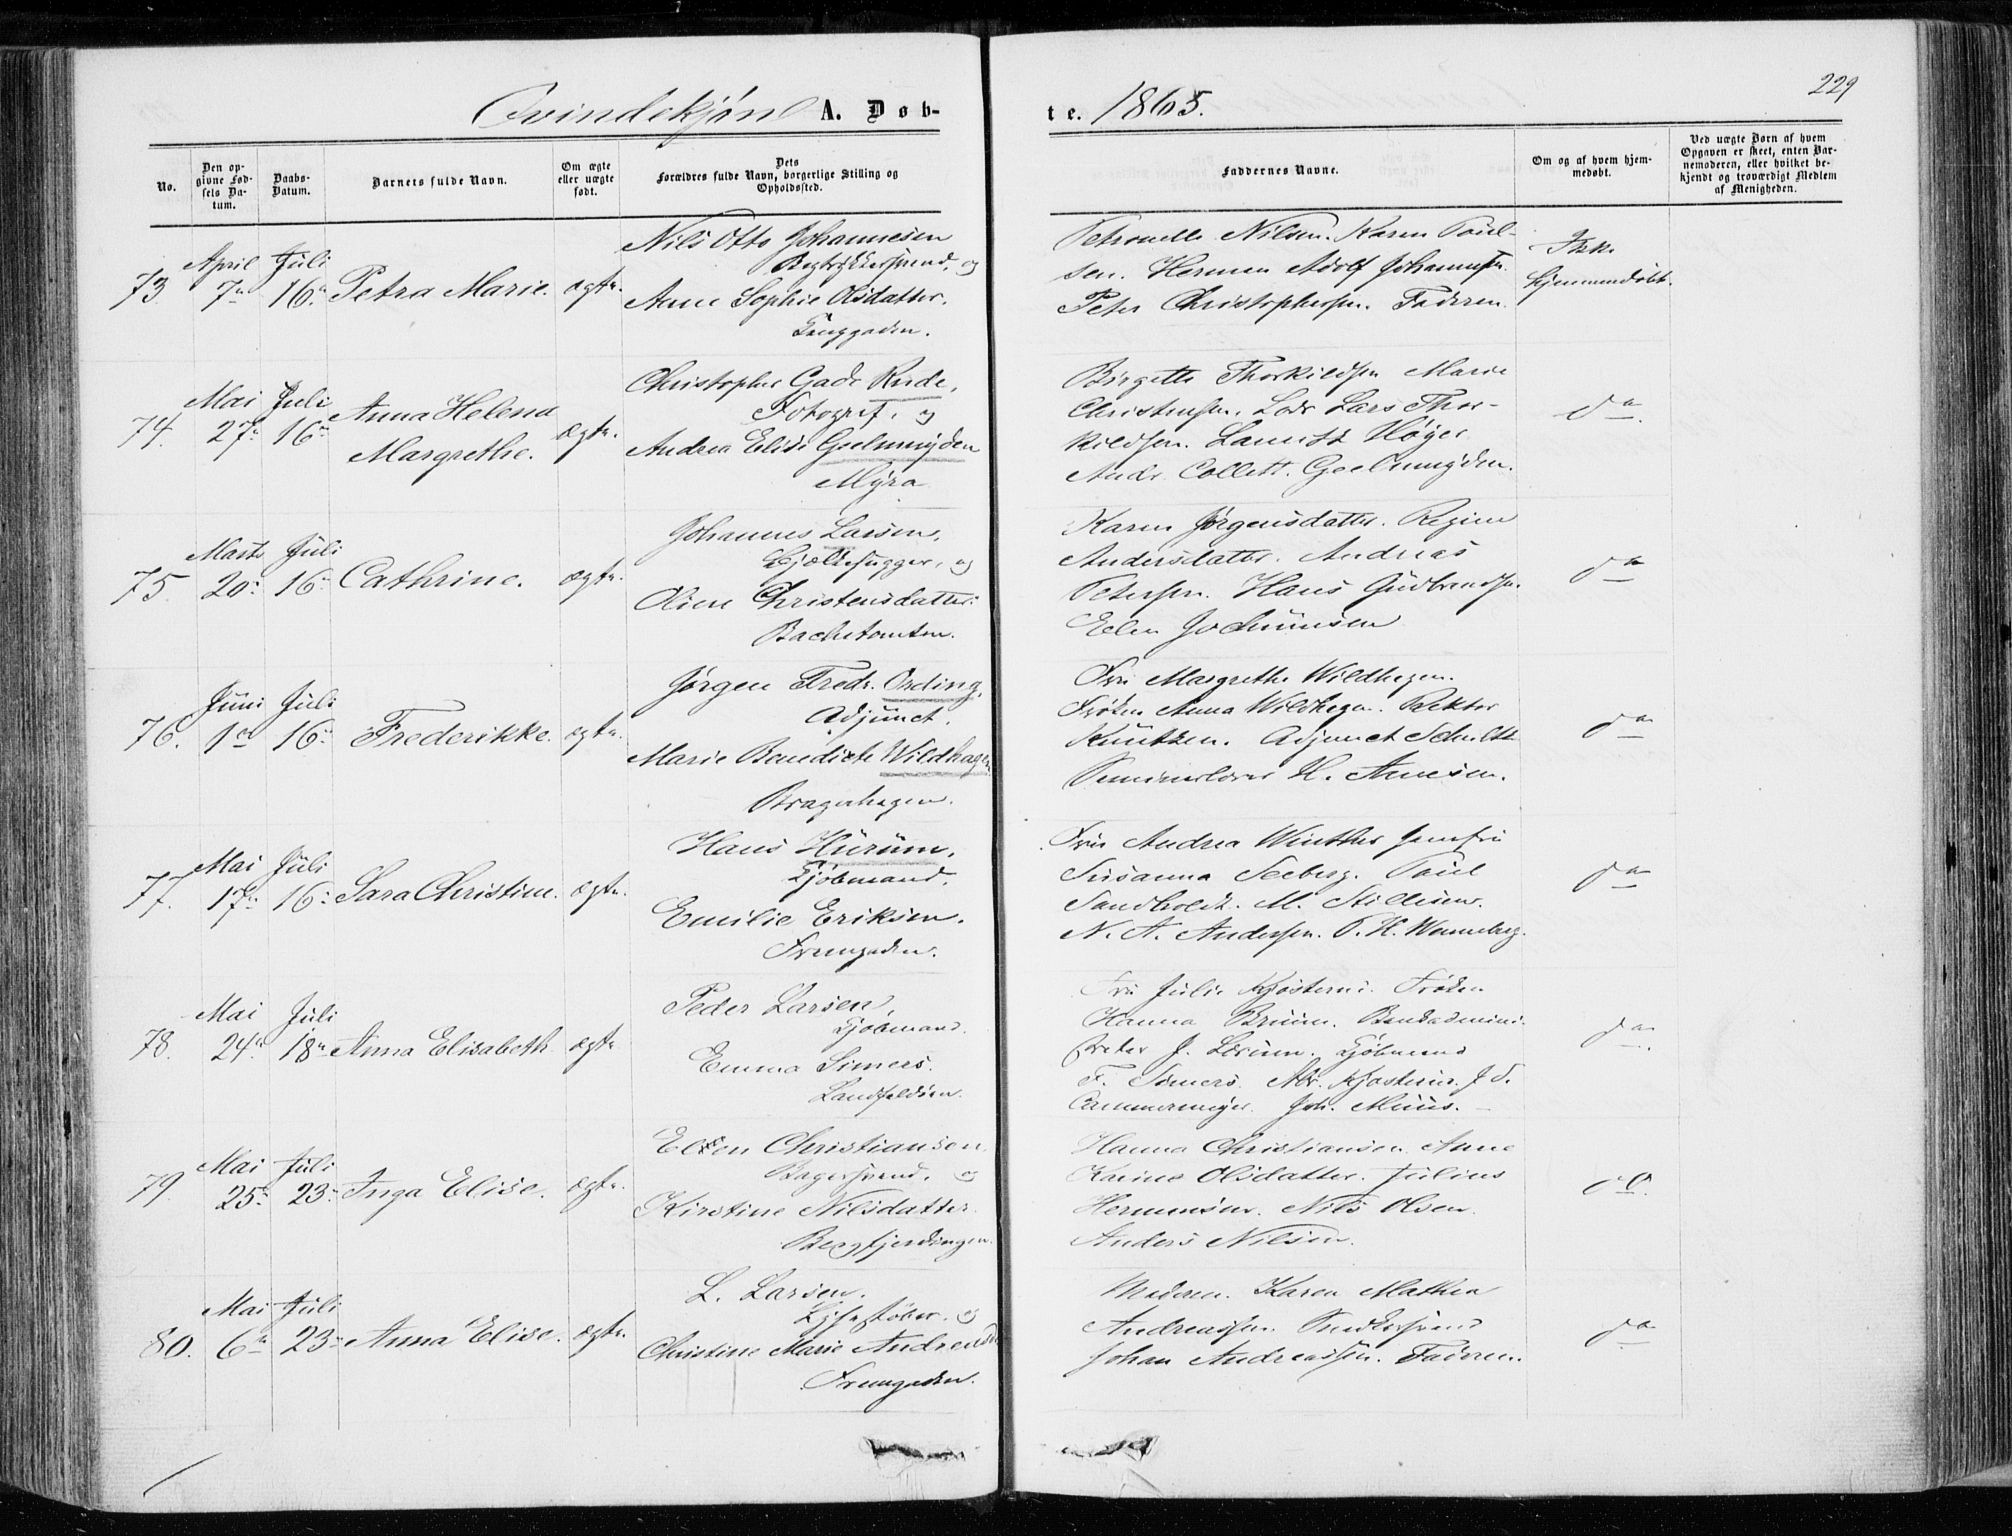 229
Qvindekjøn A. Døb-
te. 1865.
No.
Den op-
givne Fød-
sels Da-
tum.
Daabs-
Datum.
Barnets fulde Navn.
Om ægte
eller uægte
født.
Dets
Forældres fulde Navn, borgerlige Stilling og
Opholdssted.
Faddernes Navne.
Om og af hvem hjem-
medøbt.
Ved uægte Børn af hvem
Opgaven er skeet, enten Bar-
nemoderen, eller hvilket be-
kjendt og troværdigt Medlem
af Menigheden.
73. April 7de Juli 16de Petra Marie. ægte.
Nils Otto Johannesen
og
Anne Sophie Olsdatter.
Petronelle Nilsen. Karen Paul-
sen. Herman Adolf Johannesen.
Peter Christophersen. Faderen.
Ikke
hjemmedøbt.
74. Mai 27de Juli 16de Anna Helena
Margrethe. ægte.
Christopher Gade Rude,
Fotograf, og
Andrea Elise Geelmuyden
Myra
Birgette Thorkildsen Marie
Christensen. Lars Thor-
kildsen. Lauritz Høyer
Andr. Collett. Geelmuyden.
do
75. Marts 20de Juli 16de Cathrine. ægte.
Johannes Larsen,
og
Oline Christensdatter.
Bachetomten.
Karen Jørgensdatter. Regine
Andersdatter. Andreas
Petersen. Hans Gudbrandsen.
do
76. Juni 1ste Juli 16de Frederikke. ægte.
Jørgen Fredr. Ording,
Adjunct.
Marie Benedicte Wildhagen
Bragerhagen.
Fru Margrethe Wildhagen.
Frøken Anna Wildhagen. Rektor
Knutzen. Adjunct Schultz
H. Arnesen.
do
77. Mai 17de Juli 16de Sara Christine. ægte.
Hans Hurum,
Kjøbmand.
Emilie Eriksen.
Fremgaden.
Fru Andrea Winther Jomfru
Susanna Seeberg. Paul
Sandholdt. M. Stillesen.
N. A. Andersen. P. H. Wenneberg.
do
78. Mai 24de Juli 18de Anna Elisabeth. ægte
Peder Larsen,
Kjøbmand.
Emma Simers.
Landfaldöen.
Fru Julie Kjøsterud. Frøken
Hanna Bruun.
J. Lærum. Kjøbmand
F. Simers. Kjøsterud. J. S.
Cammermeyer. Joh. Muus.
do
79. Mai 25de Juli 23de Inga Elise. ægte.
Christiansen
Bagersvend, og
Kirstine Nilsdatter.
Bergfjerdingen.
Hanna Christiansen. Anne
Karine Olsdatter. Julius
Hermansen. Nils Olsen.
Anders Nilsen.
do
80. Mai 6te Juli 23de Anna Elise. ægte.
L. Larsen.
og
Christine Marie
Fremgaden.
Moderen. Karen Mathea
Andreassen. Snedkersvend
Johan Andreassen. Faderen.
do